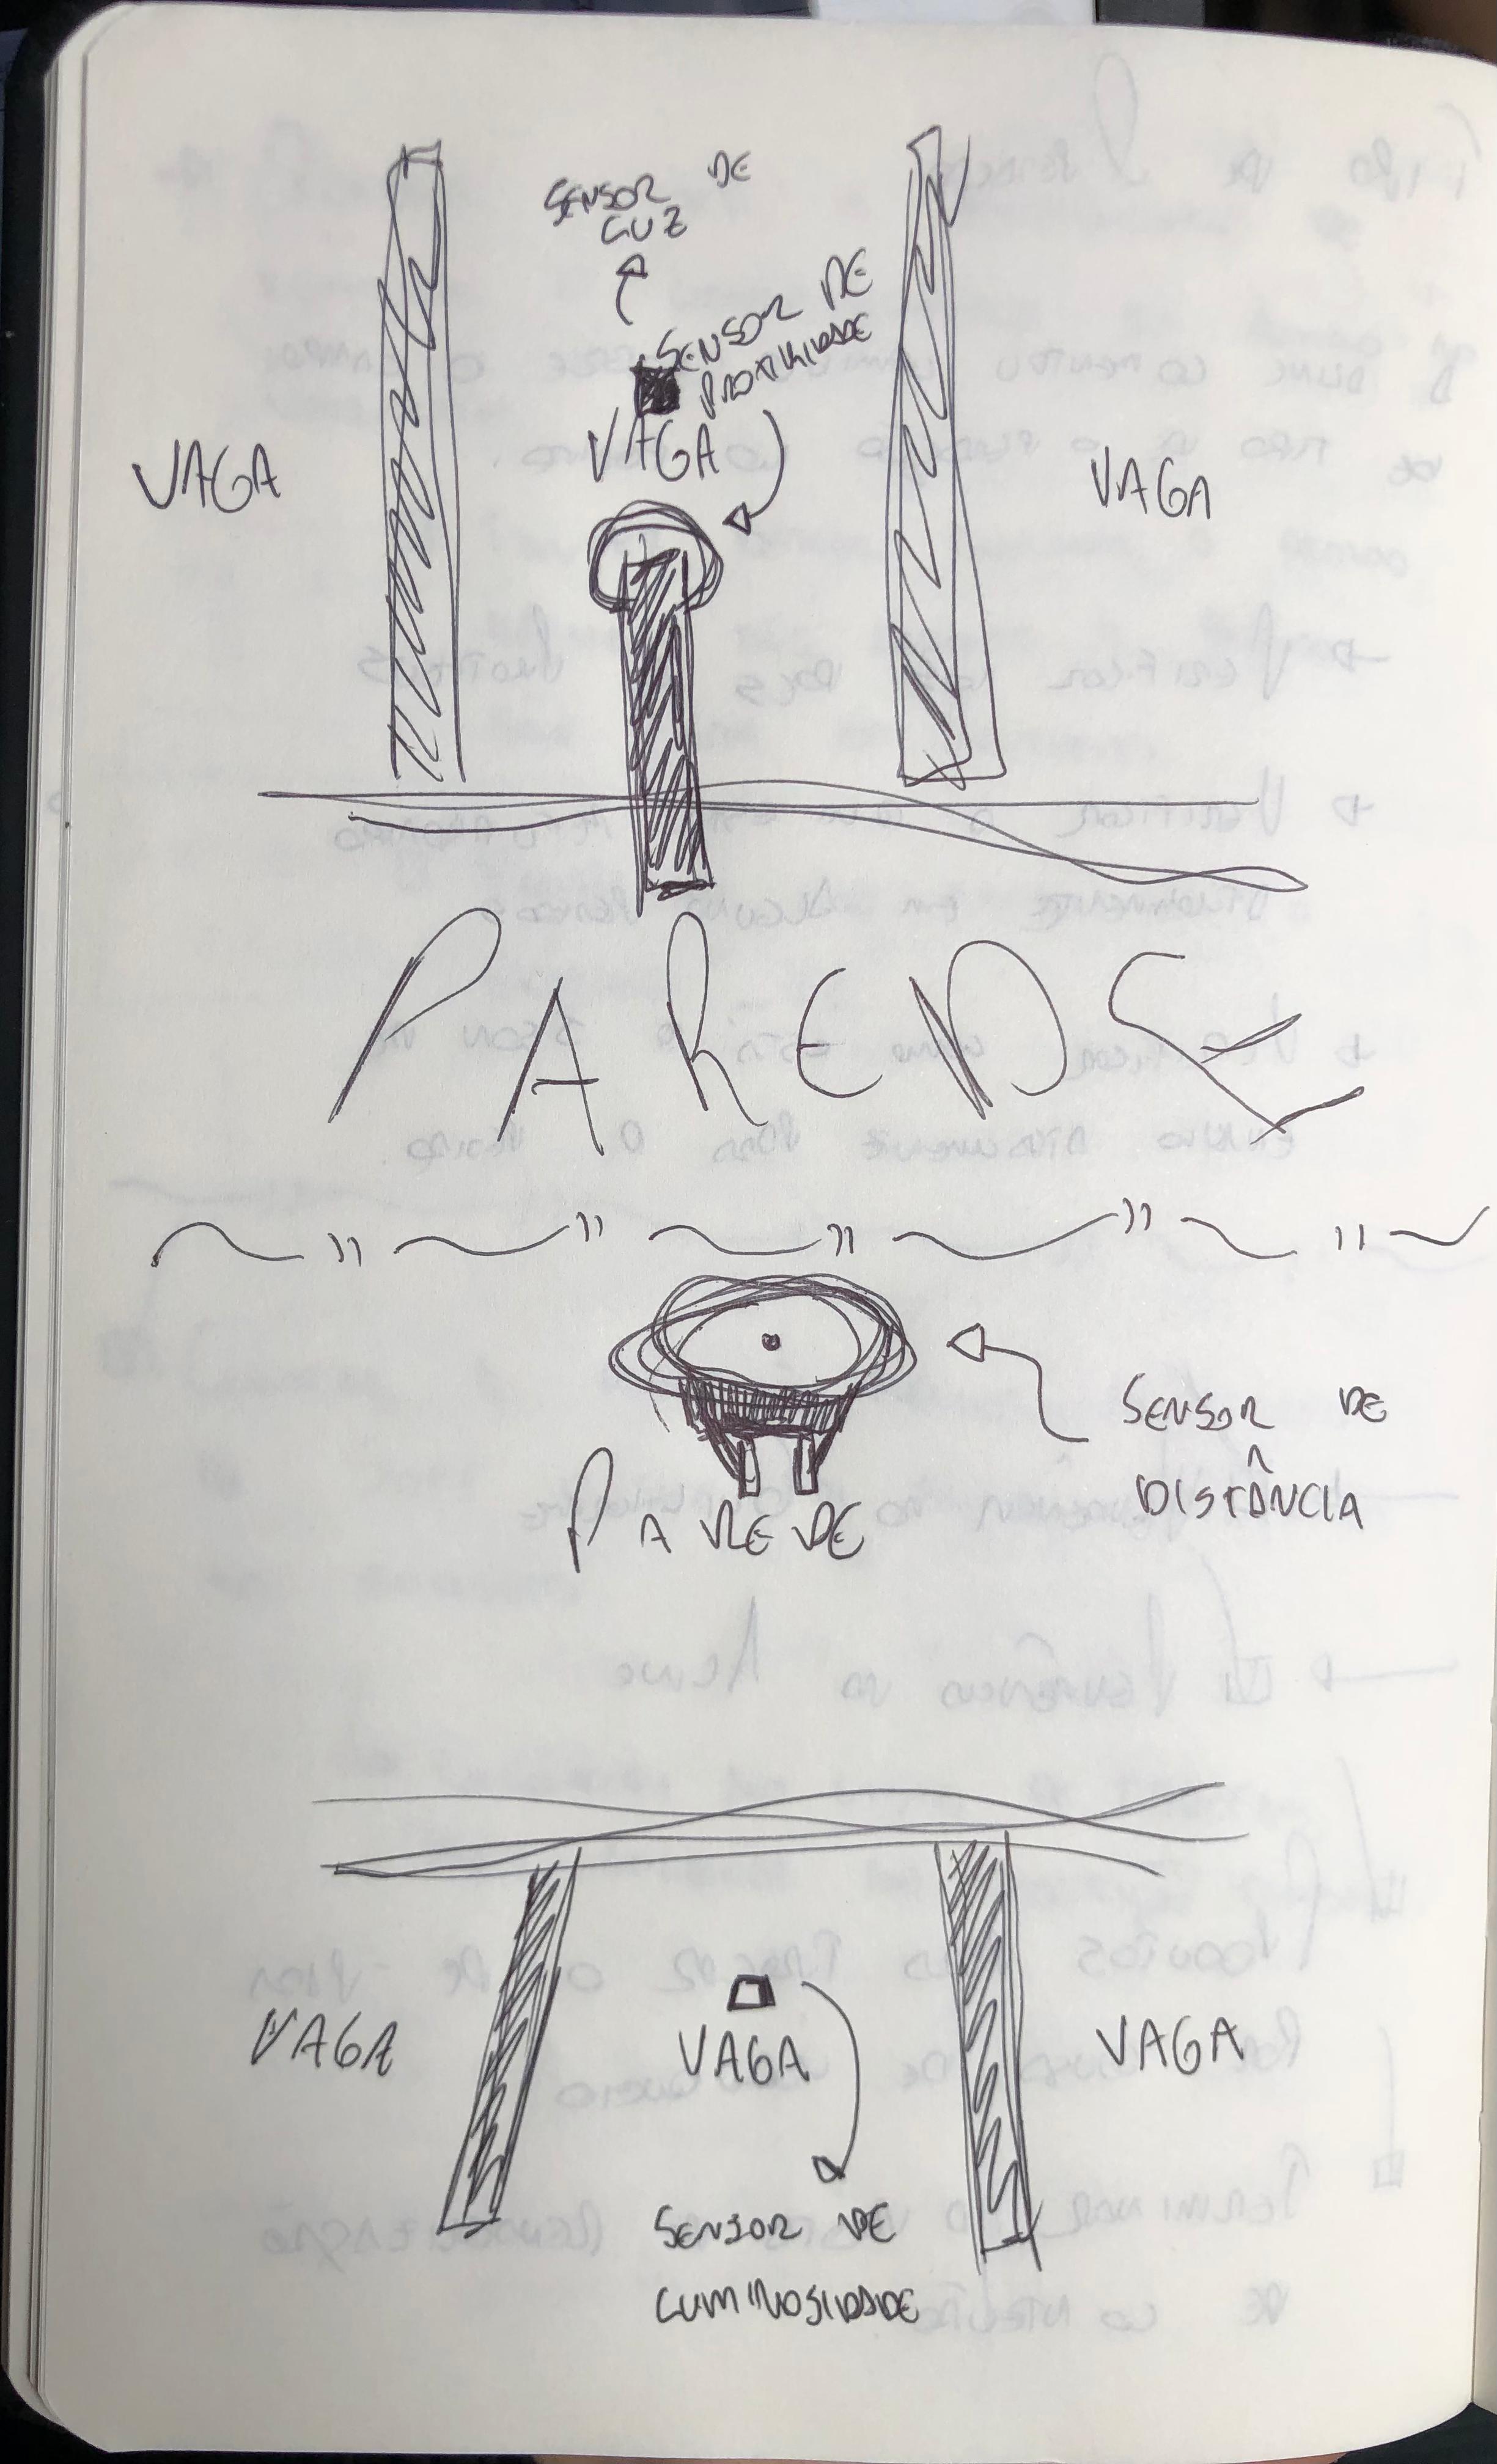 SENSOR DE
LUZ
SENSOR DE
PROXIMIDADE
VAGA
VAGA
VAGA
PAREDE
SENSOR DE
DISTÂNCIA
PAREDE
VAGA
VAGA
VAGA
SENSOR DE
LUMINOSIDADE